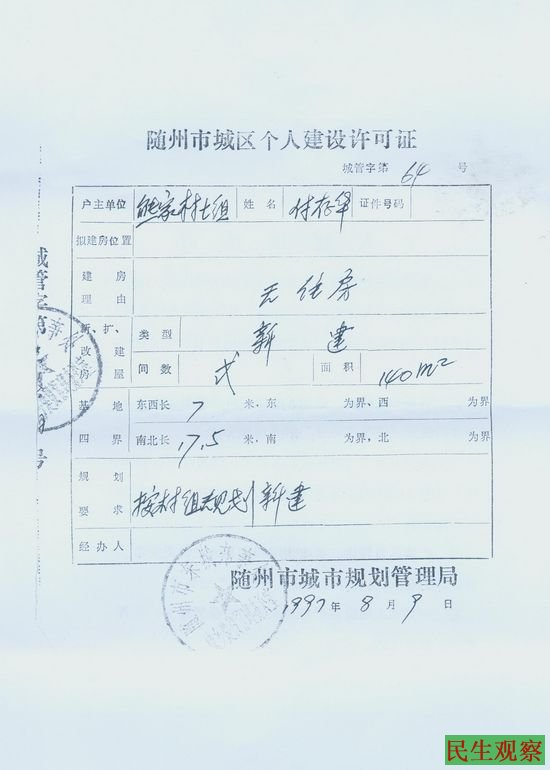 随州市城区个人建设许可证
城管字第 64 号
户主单位 熊家村七组 姓名 付存华 证件号码
拟建房位置
建房理由 无住房
新、扩、改建房屋 类型 新建
间数 弍 面积 140m²
基地四界 东西长 7 米，东 为界、西 为界
南北长 17.5 米，南 为界，北 为界
规划要求 按村组规划新建
经办人
随州市城市规划管理局
1997年8月9日
城管字第
号
民生观察